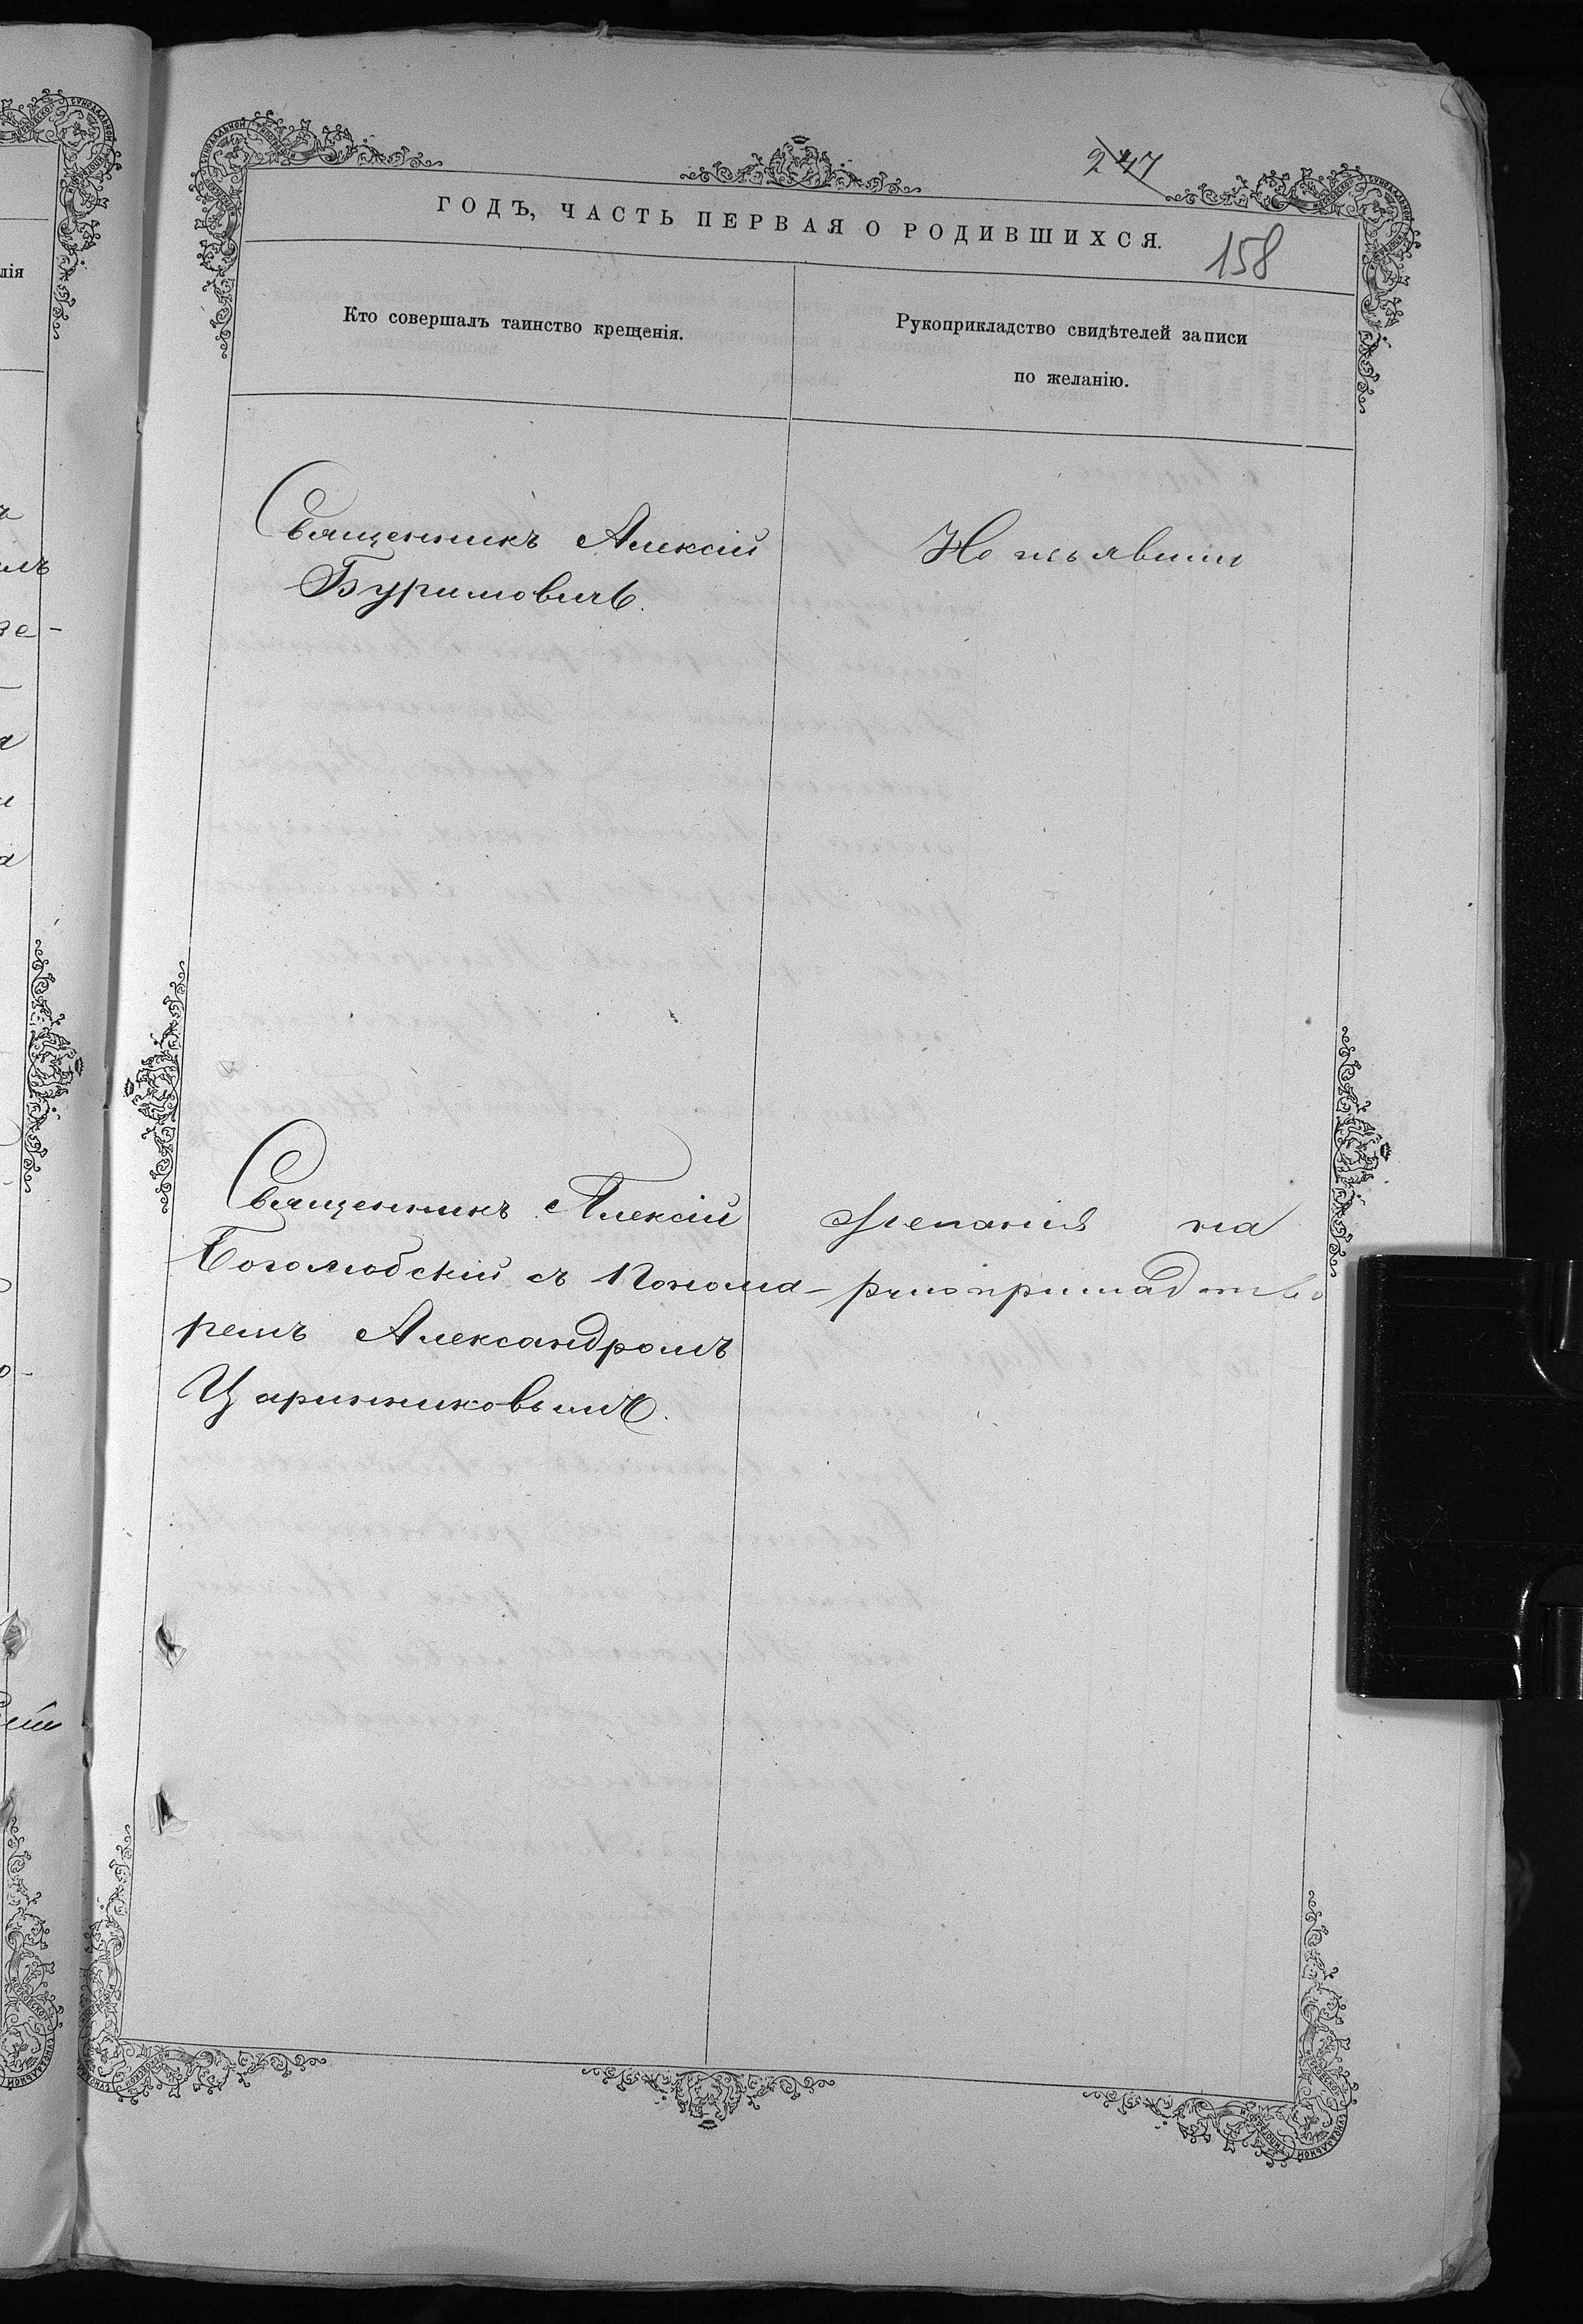 247
ГОДЪ, ЧАСТЬ ПЕРВАЯ О РОДИВШИХСЯ.
158
Кто совершалъ таинство крещенія.
Рукоприкладство свидѣтелей записи
по желанію.
Священникъ Алексій
Буримовичъ.
Не изъявили
Священникъ Алексій
Боголюбскій съ Понома-
ремъ Александромъ
Царинниковымъ.
желанія на
рукоприкладство